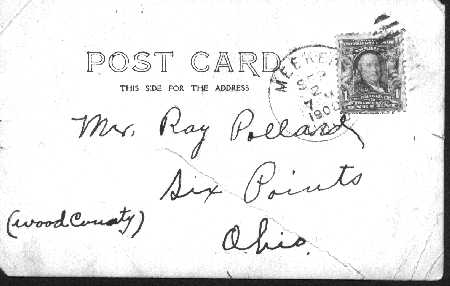 POST CARD
THIS SIDE FOR THE ADDRESS
MEEKER
SEP
7
190
Mr. Ray Polland
Six Points
(Wood County)
Ohio.